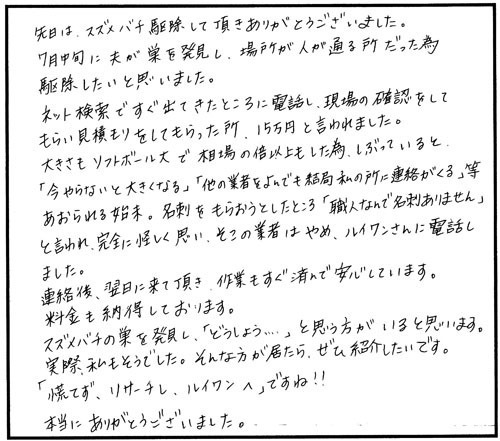 先日は、スズメバチ駆除して頂きありがとうございました。
7月中旬に夫が巣を発見し、場所が人が通る所だった為
駆除したいと思いました。
ネット検索ですぐ出てきたところに電話し、現場の確認をして
もらい見積もりをしてもらった所、15万円と言われました。
大きさもソフトボール大で相場の倍以上もした為、しぶっていると、
「今やらないと大きくなる」「他の業者をよんでも結局私の所に連絡がくる」等
あおられる始末。名刺をもらおうとしたところ「職人なんで名刺ありません」
と言われ、完全に怪しく思い、そこの業者はやめ、ルイワンさんに電話し
ました。
連絡後、翌日に来て頂き、作業もすぐ済んで安心しています。
料金も納得しております。
スズメバチの巣を発見し、「どうしよう…。」と思う方がいると思います。
実際、私もそうでした。そんな方が居たら、ぜひ紹介したいです。
「慌てず、リサーチし、ルイワンへ」ですね!!
本当にありがとうございました。